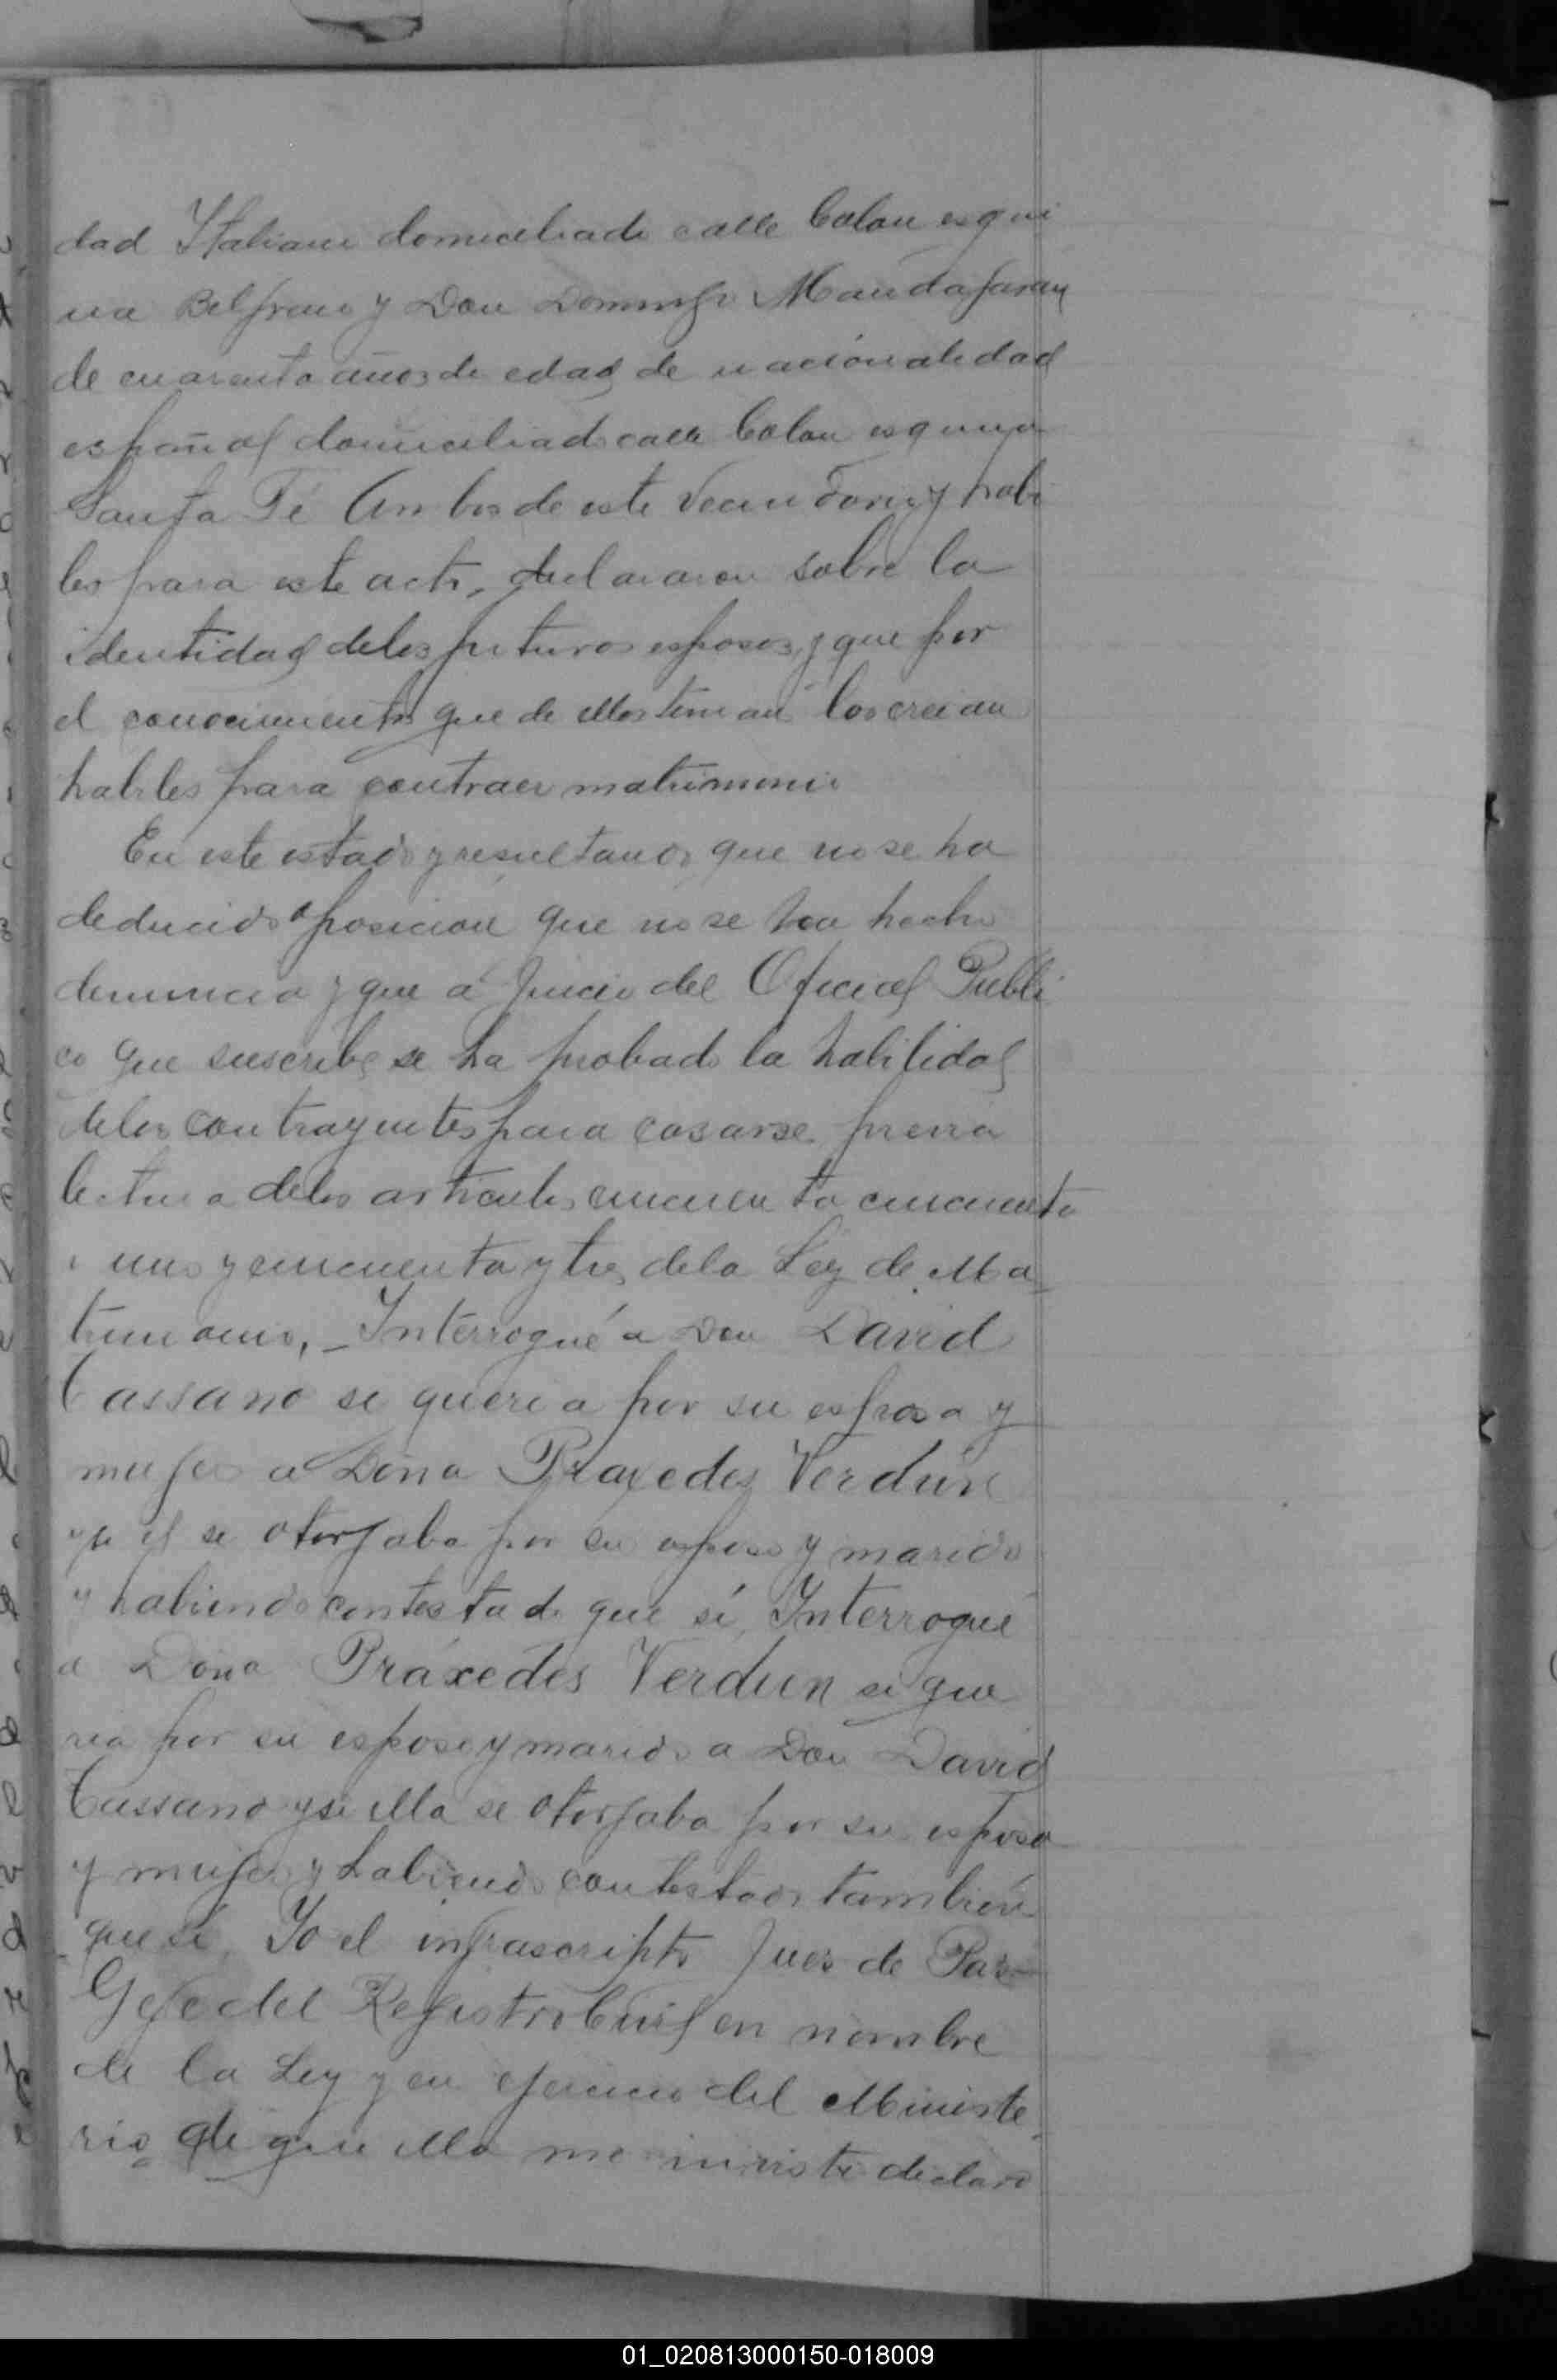 dad Italiana domiciliado calle Colon esqui
na Belgrano y Don Domingo
de cuarenta años de edad de nacionalidad
español domiciliado calle Colon esquina
Santa Fé Ambos de este Vecindario y habi
les para este acto, declararon sobre la
identidad de los futuros esposos, y que por
el conocimiento que de ellos tenian los creian
habiles para contraer matrimonio
En este estado y resultando que no se ha
deducido oposicion que no se ha hecho
denuncia y que a juicio del Oficial Públi
co que suscribe se ha probado la habilidad
de los contrayentes para casarse previa
lectura de los articulos cincuenta cincuenta
y uno y cincuenta y tres de la Ley de Ma
trimonio, _ Interrogué a Don David
Cassano si queria por su esposa y
mujer a Doña Praxedes Verdún
y si el se otorgaba por su esposo y marido
y habiendo contestado que sí, Interrogué
a Doña Práxedes Verdun si que
ria por su esposo y marido a Don David
Cassano y si ella se otorgaba por su esposa
y mujer y habiendo contestado también
que sí, Yo el infrascripto Juez de Paz
Gefe del Registro Civil en nombre
de la Ley y en ejercicio del Ministe
rio de que ella me inviste declaro
01_020813000150-018009